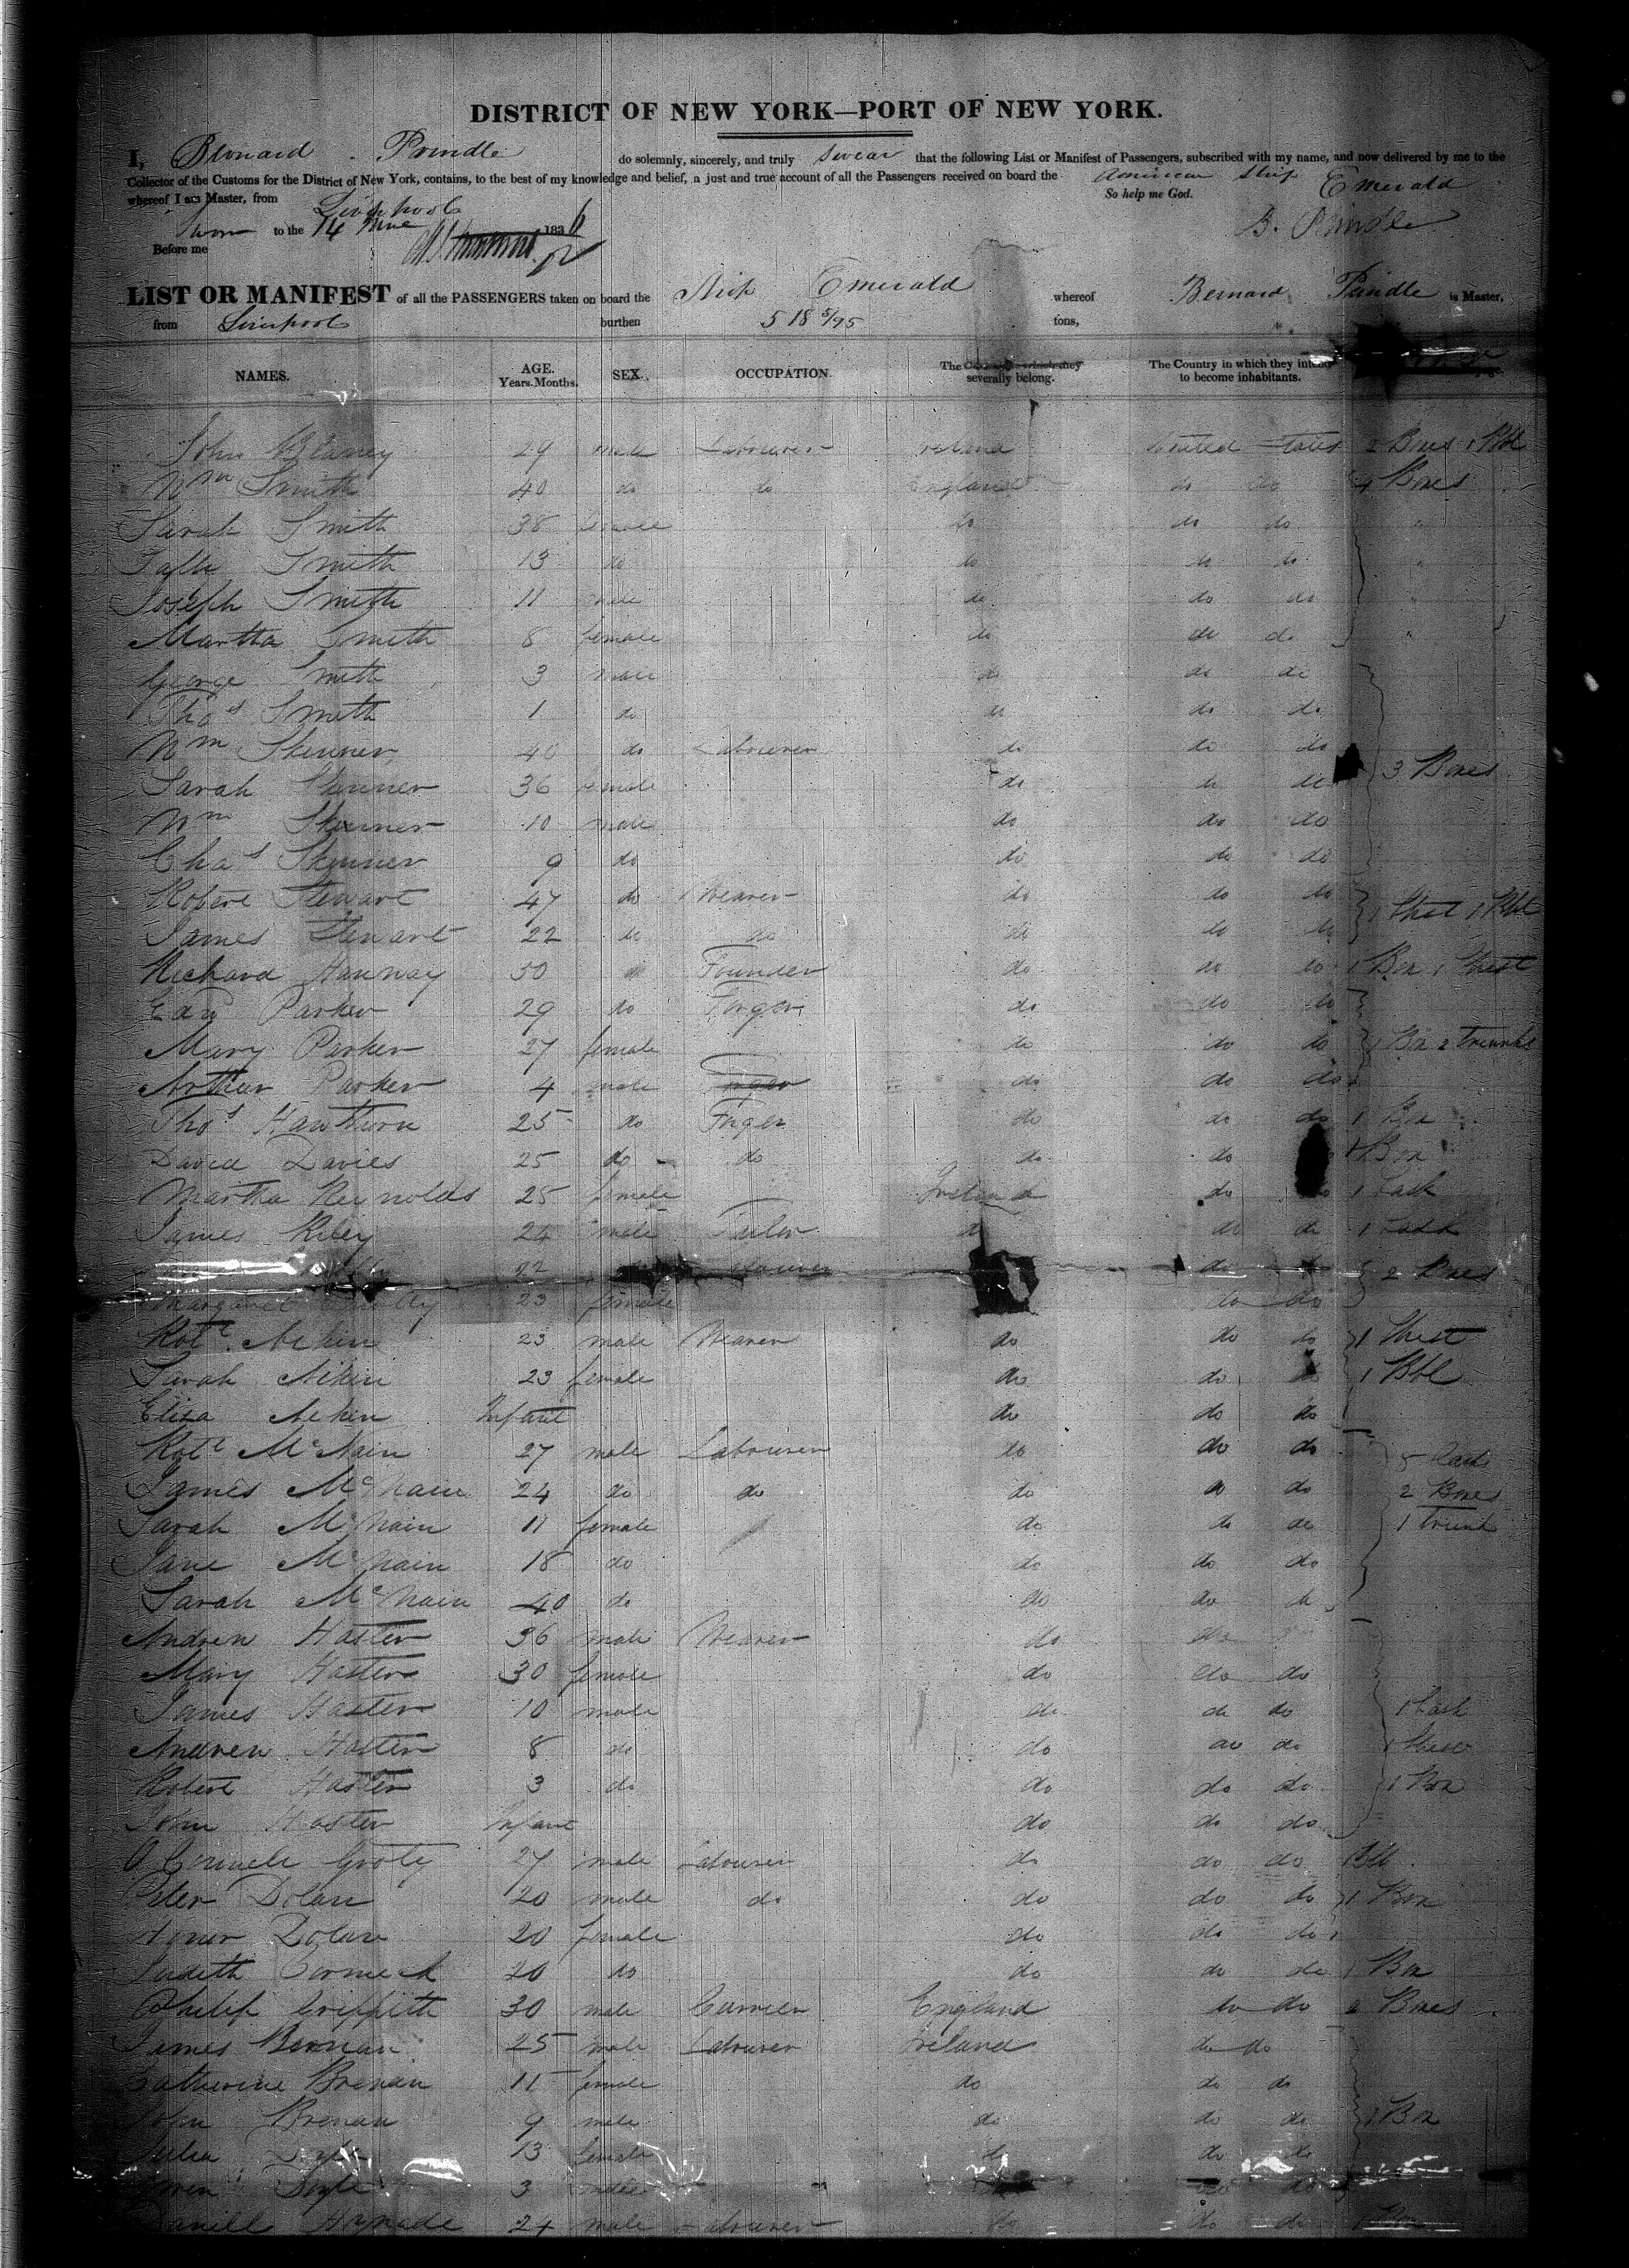 DISTRICT OF NEW YORK—PORT OF NEW YORK.
I, Bernard Prindle do solemnly, sincerely, and truly swear that the following List or Manifest of Passengers, subscribed with my name, and now delivered by me to the
Collector of the Customs for the District of New York, contains, to the best of my knowledge and belief, a just and true account of all the Passengers received on board the American Ship Emerald
whereof I am Master, from Liverpool So help me God.
to the 14 1836 B. Prindle
Before me
LIST OR MANIFEST of all the PASSENGERS taken on board the Ship Emerald whereof Bernard Prindle is Master,
from Liverpool burthen 518 5/95 tons,
NAMES. AGE. Years. Months. SEX. OCCUPATION. The they severally belong. The Country in which they intend to become inhabitants.
John 29 male Labourer Ireland United States 2 Boxes 1 Bbl
Wm Smith 40 do do England do do 4 Boxes
Sarah Smith 38 female do do do "
Smith 13 do do do do "
Joseph Smith 11 male do do do "
Martha Smith 8 female do do do "
George Smith 3 male do do do
Thos Smith 1 do do do do
Wm Skinner 40 do Labourer do do do
Sarah Skinner 36 female do do do 3 Boxes
Wm Skinner 10 male do do do
Chas Skinner 9 do do do do
Robert Stewart 47 do Weaver do do do
James Stewart 22 do do do do do 1 Chest 1 Bbl
Richard Hannay 50 do Founder do do do 1 Box 1 Chest
Edwd Parker 29 do Forger do do do
Mary Parker 27 female do do do 1 Box 2 trunks
Arthur Parker 4 male do do do
Thos Hawthorn 25 do Forger do do do 1 Box
David Davies 25 do do do do 1 Box
Martha Reynolds 25 female Ireland do do 1 Cask
James Riley 24 male Tailor do do do 1 Cask
22 Labourer do do 2 Boxes
Margaret 23 female do do
Robt Aiken 23 male Weaver do do do 1 Chest
Sarah Aiken 23 female do do do 1 Bbl
Eliza Aiken Infant do do do
Robt McNain 27 male Labourer do do do
James McNain 24 do do do do do 2 Boxes
Sarah McNain 11 female do do do 1 trunk
Jane McNain 18 do do do do
Sarah McNain 40 do do do do
Andrew Haster 36 male Weaver do do
Mary Haster 30 female do do do
James Haster 10 male do do do 1 Cask
Andrew Haster 8 do do do do
Robert Haster 3 do do do do 1 Box
John Haster Infant do do do
27 male Labourer do do do 1 Bbl
Peter Dolan 20 male do do do do 1 Box
Dolan 20 female do do do
Judith Cormick 20 do do do do 1 Box
Philip Griffith 30 male Currier England do do 2 Boxes
James Brenan 25 male Labourer Ireland do do
Catherine Brenan 11 female do do do
John Brenan 9 male do do do 1 Box
Julia 13 female do do do
Owen Doyle 3 male do
Daniell 24 male Labourer do do do 1 Box